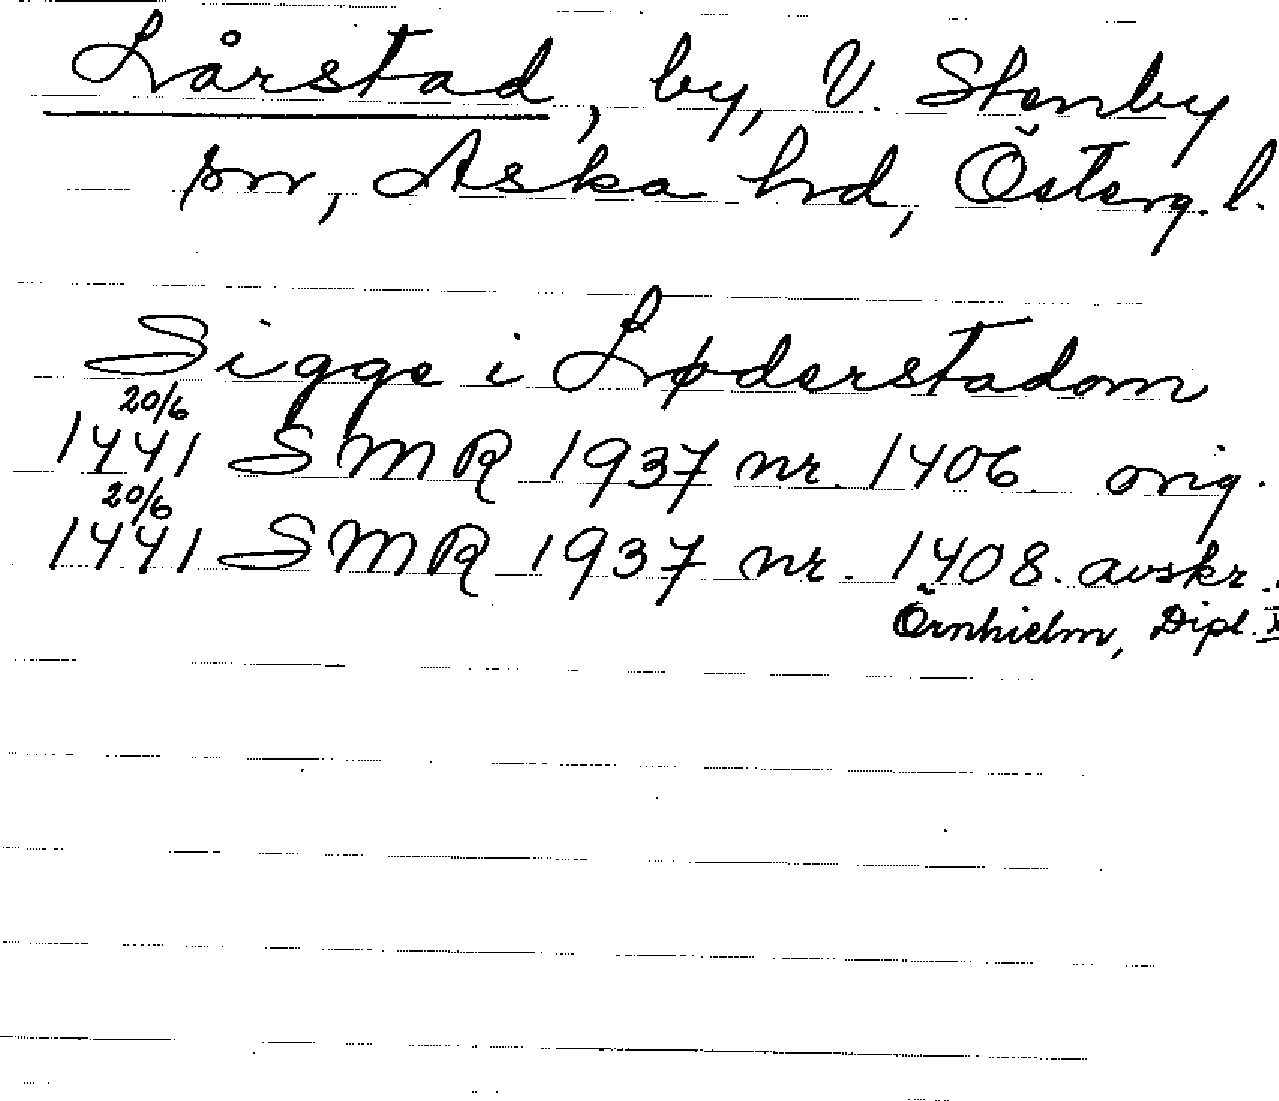 Lårstad, by, V. Stenby
sn, Aska hd, Österg. l.
Sigge i Løderstadom
20/6
1441 SMR 1937 nr. 1406 orig.
20/6
1441 SMR 1937 nr. 1408. avskr.
Örnhielm, Dipl.